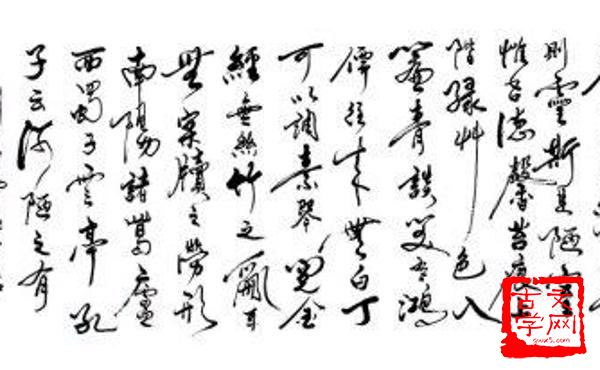 則靈斯是陋室
惟吾德馨苔痕上
階緑艸色入
簾青談笑有鴻
儒往来無白丁
可以調素琴閱金
經無絲竹之亂耳
無案牘之勞形
南陽諸葛廬
西蜀子雲亭孔
子云何陋之有
古文
学网